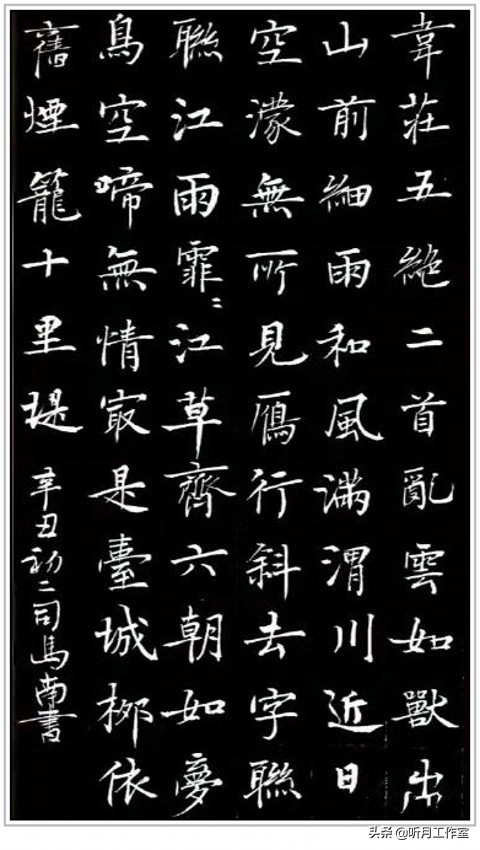 韋莊五絶二首亂雲如獸出
山前細雨和風滿渭川近日
空濛無所見鴈行斜去字聯
聯江雨霏〻江草齊六朝如夢
鳥空啼無情㝡是臺城栁依
舊煙籠十里堤 辛丑初二司馬南書
头条 @听月工作室